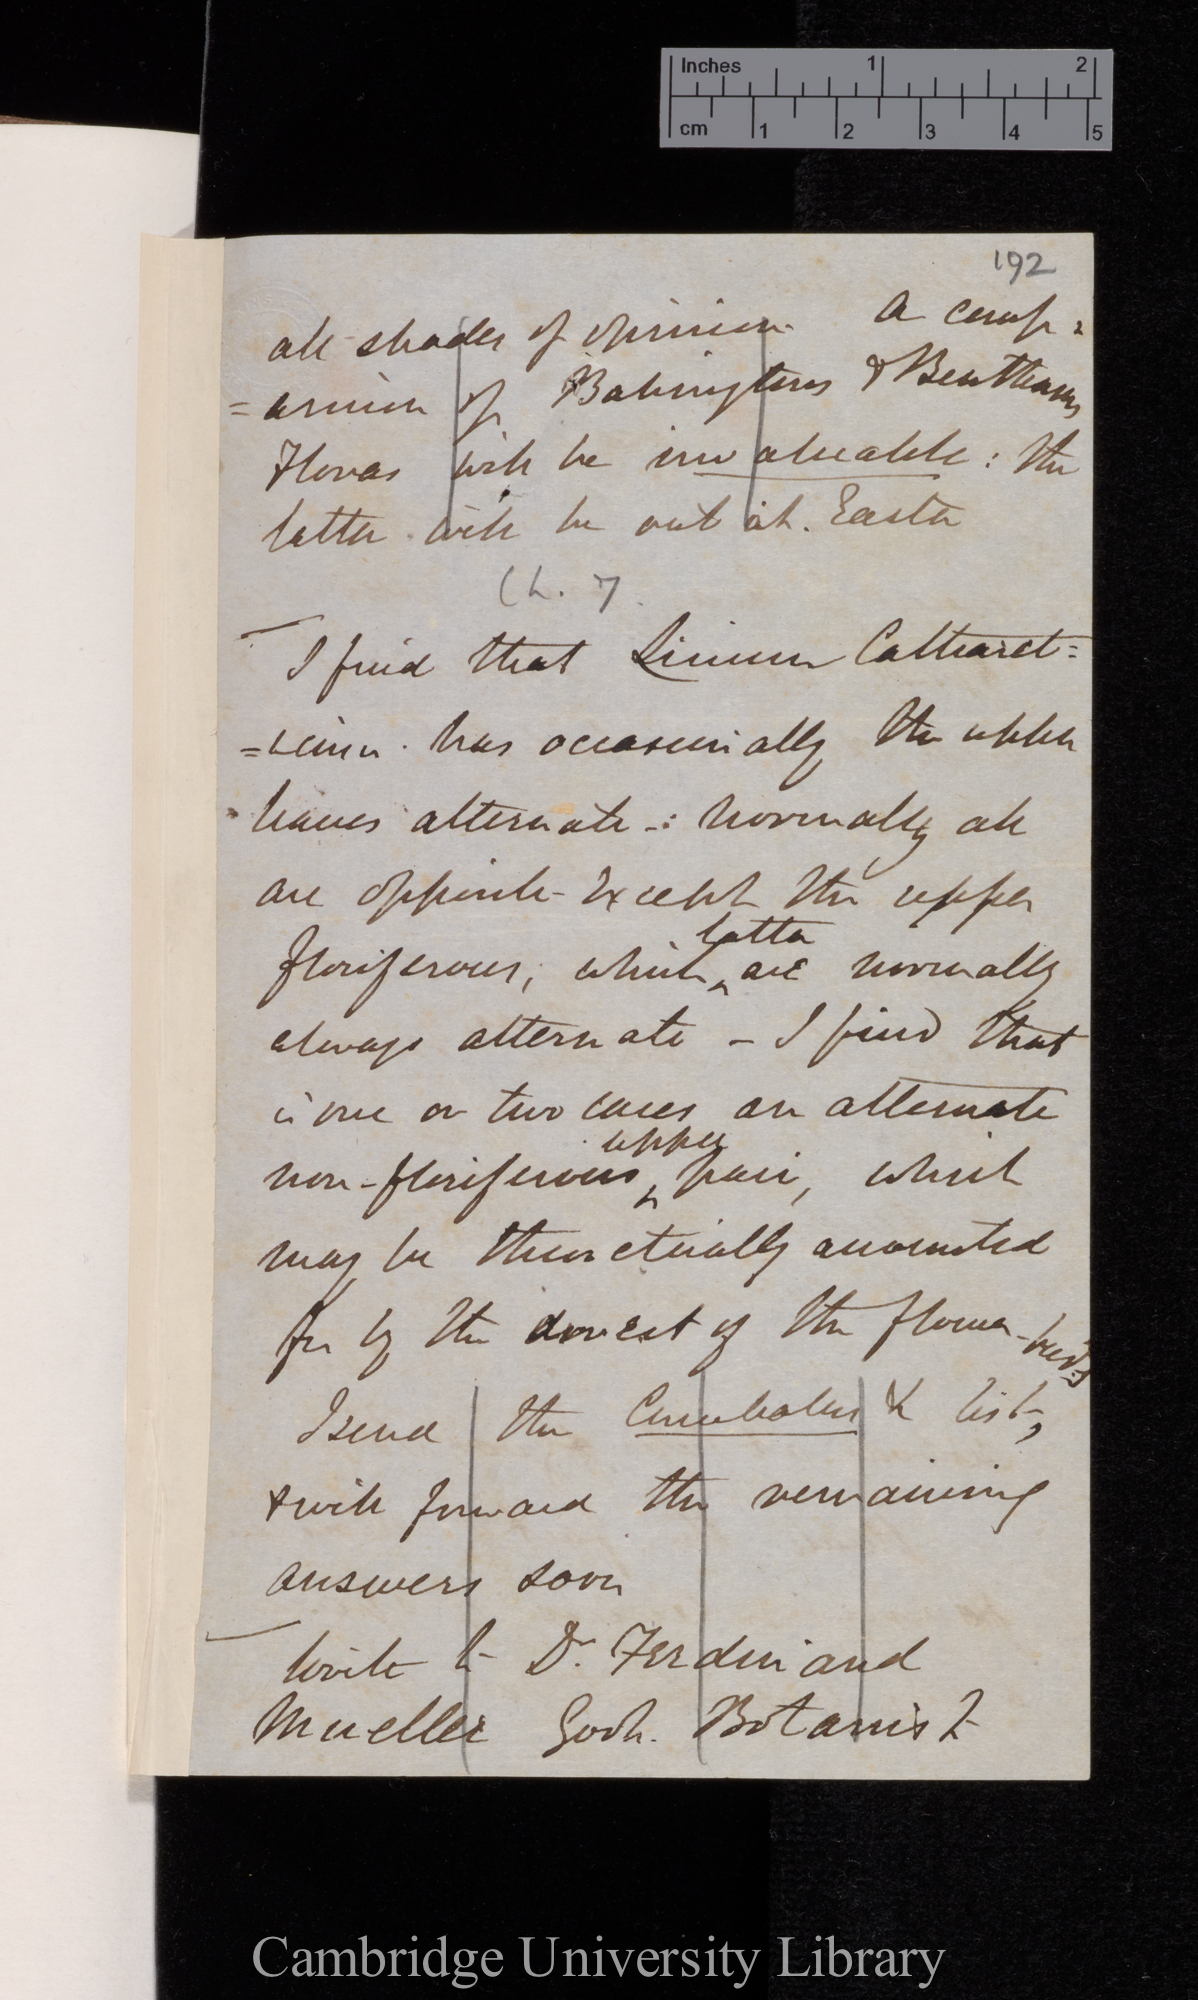 Inches 1 2
cm 1 2 3 4 5
192
all shades of opinion. A comp=
=arison of Babingtons & Benthams
Floras will be invaluable: the
latter will be out at. Easter
Ch. 7.
I find that Linum Cathart=
=icum. has occasionally the upper
leaves alternate -: normally all
are opposite except the upper
floriferous; which latter are normally
always alternate – I find that
in one or two cases an alternate
non-floriferous upper pair, which
may be theoretically accounted
for by the arrest of the flower-buds
I send the & list,
& will forward the remaining
answers soon
Write to Dr. Ferdinand
Mueller Govt. Botanist
Cambridge University Library